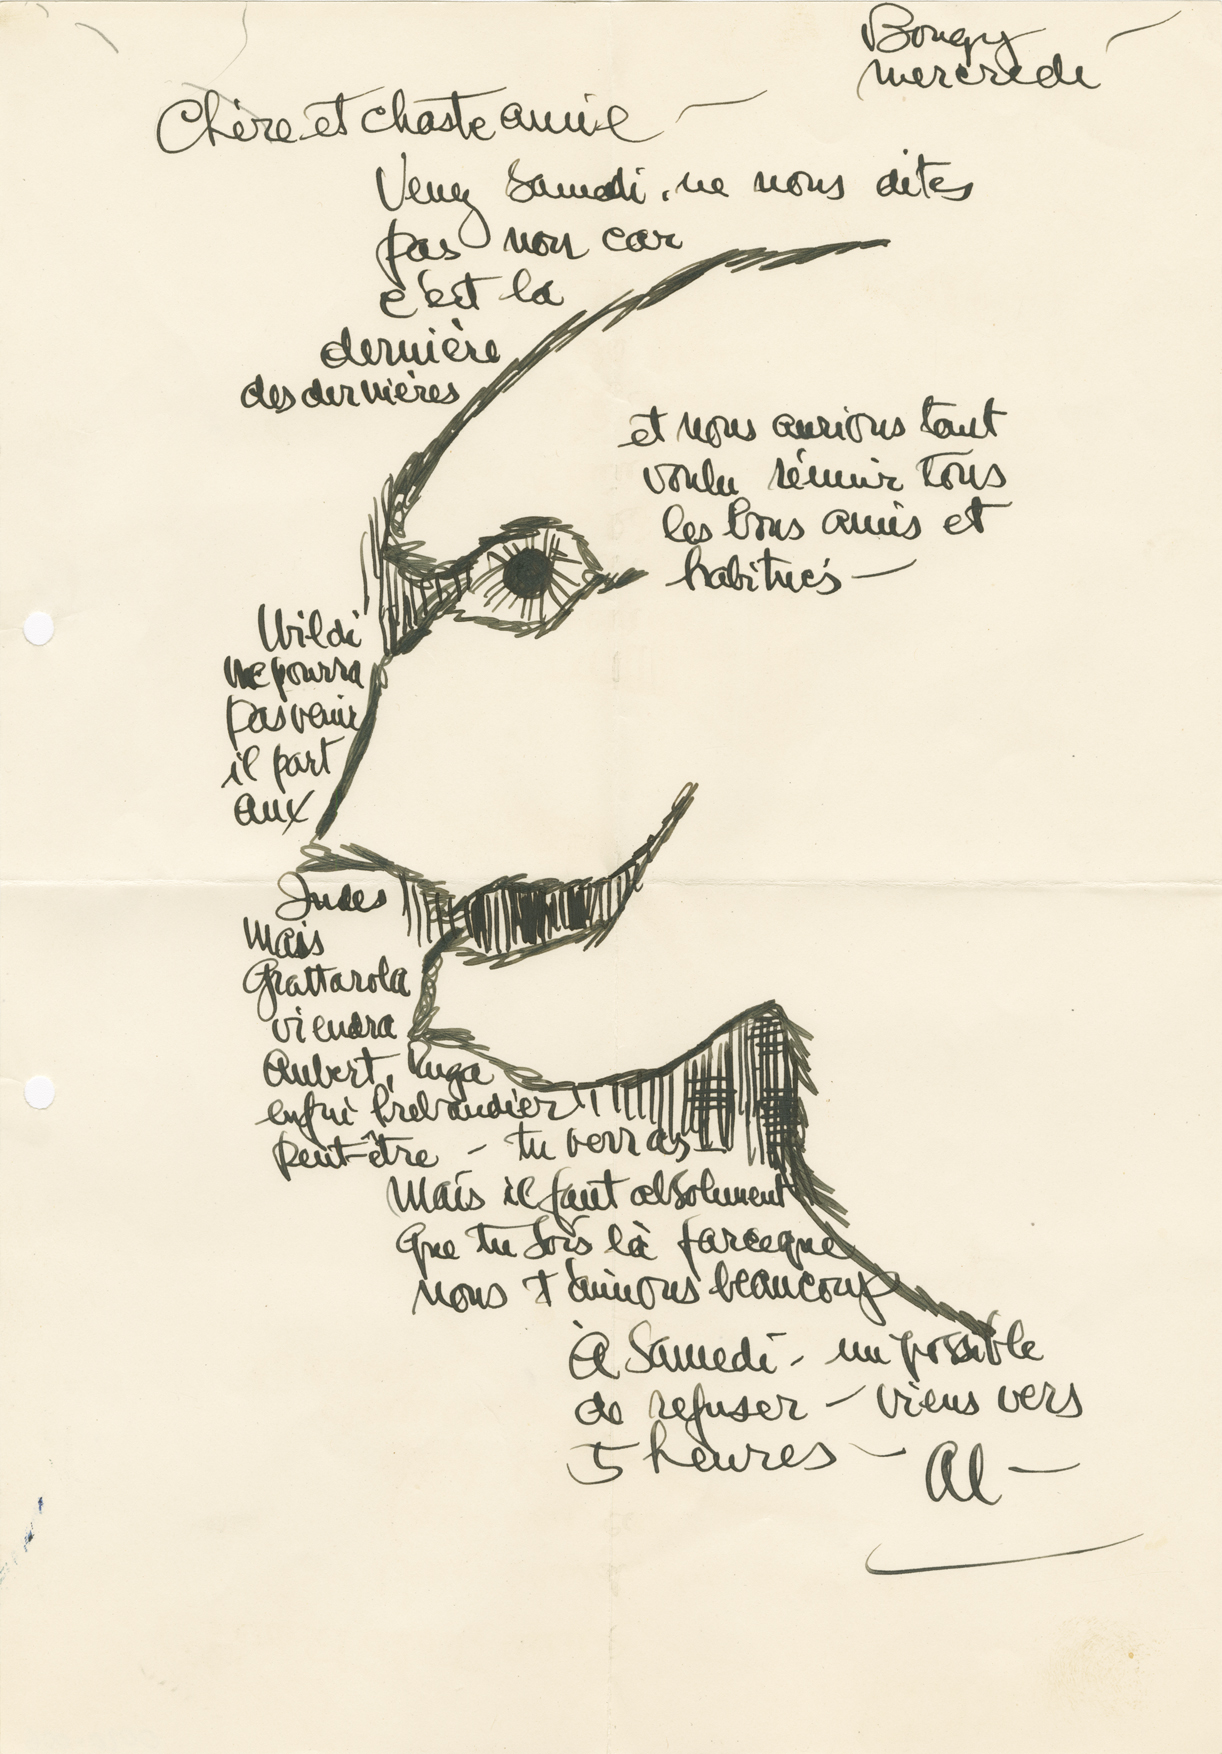 Bougy
mercredi
Chère et chaste amie
Venez samedi, ne nous dites
pas non car
c'est la
dernière
des dernières
et nous aurions tant
voulu réunir tous
les bons amis et
habitués —
Wildi
ne pourra
pas venir
il part
aux
Indes
Mais
Grattarola
viendra
Aubert,
enfin
peut-être — tu verras
Mais il faut absolument
que tu sois là parceque
nous t'aimons beaucoup
à Samedi - impossible
de refuser — viens vers
5 heures — Al —